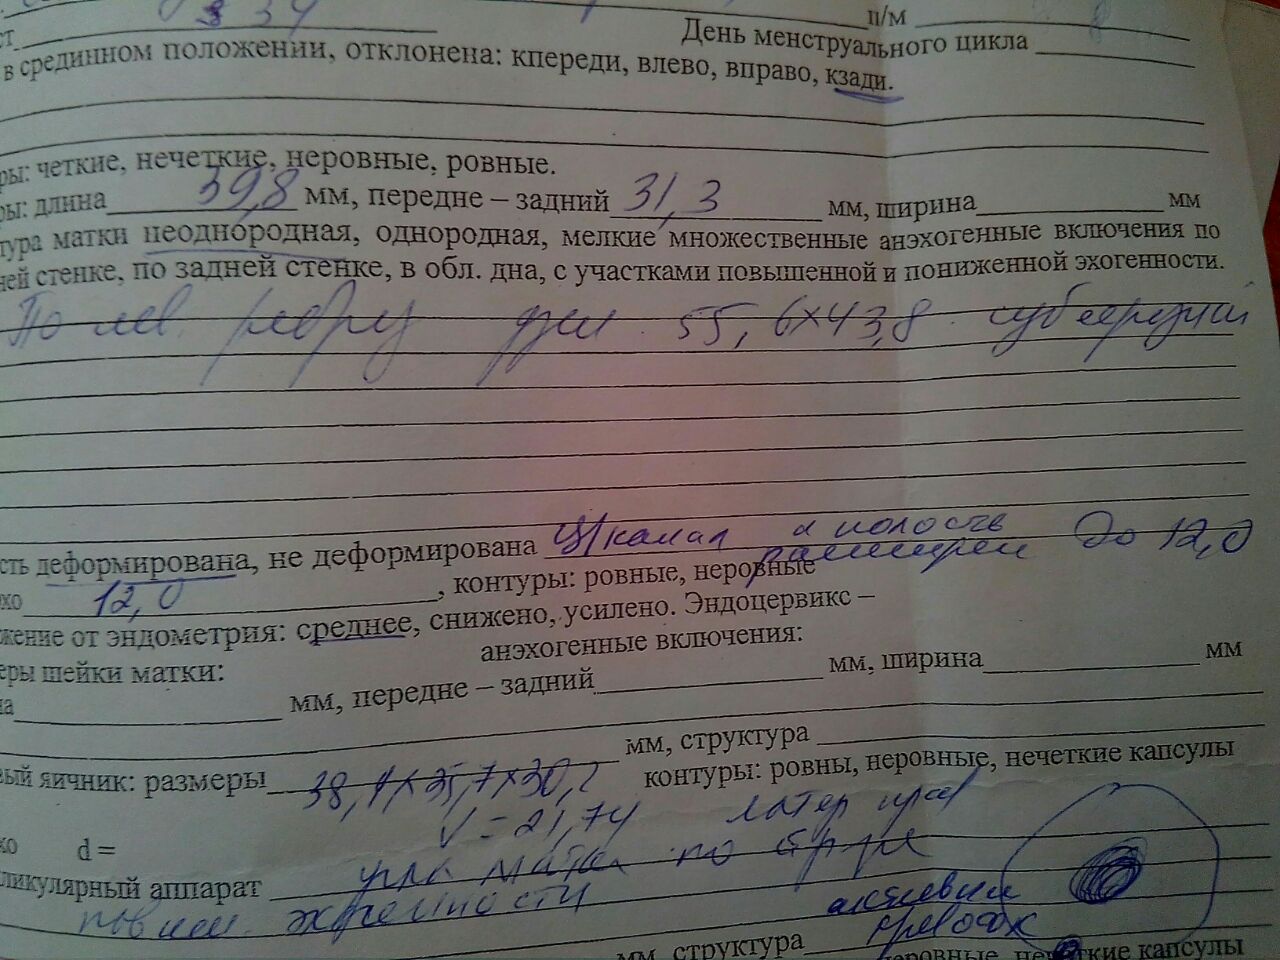 ст 34 п/м 8
День менструального цикла
в срединном положении, отклонена: кпереди, влево, вправо, кзади.
ры: четкие, нечеткие, неровные, ровные.
ры: длина 39,8 мм, передне – задний 31,3 мм, ширина мм
тура матки неоднородная, однородная, мелкие множественные анэхогенные включения по
ней стенке, по задней стенке, в обл. дна, с участками повышенной и пониженной эхогенности.
По лев. ребру 55,6х43,8
сть деформирована, не деформирована ц/канал и полость
расширен до 12,0
хо 12,0 , контуры: ровные, неровные
жение от эндометрия: среднее, снижено, усилено. Эндоцервикс –
анэхогенные включения:
еры шейки матки:
на мм, передне – задний мм, ширина мм
мм, структура
вый яичник: размеры 38,1х35,7х30,2 контуры: ровны, неровные, нечеткие капсулы
V = 21,74 латер прав
ко d =
ликулярный аппарат угла матки по
повыш. эхогенности активный
кровоток
мм, структура
неровные, нечеткие капсулы